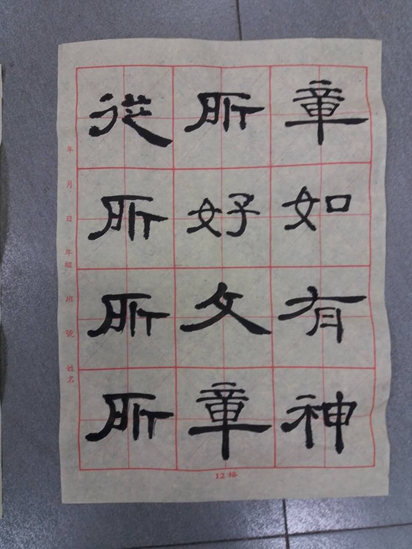 從所所所
所好文章
章如有神
年 月 日 年級 班 號 姓名
12格